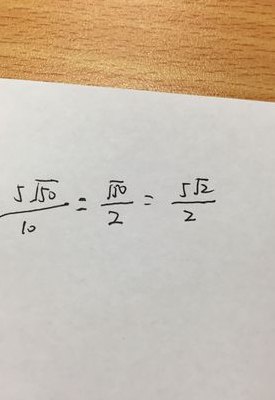 5√50/10 = √50/2 = 5√2/2